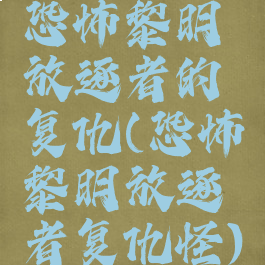 恐怖黎明
放逐者的
复仇(恐怖
黎明放逐
者复仇怪)